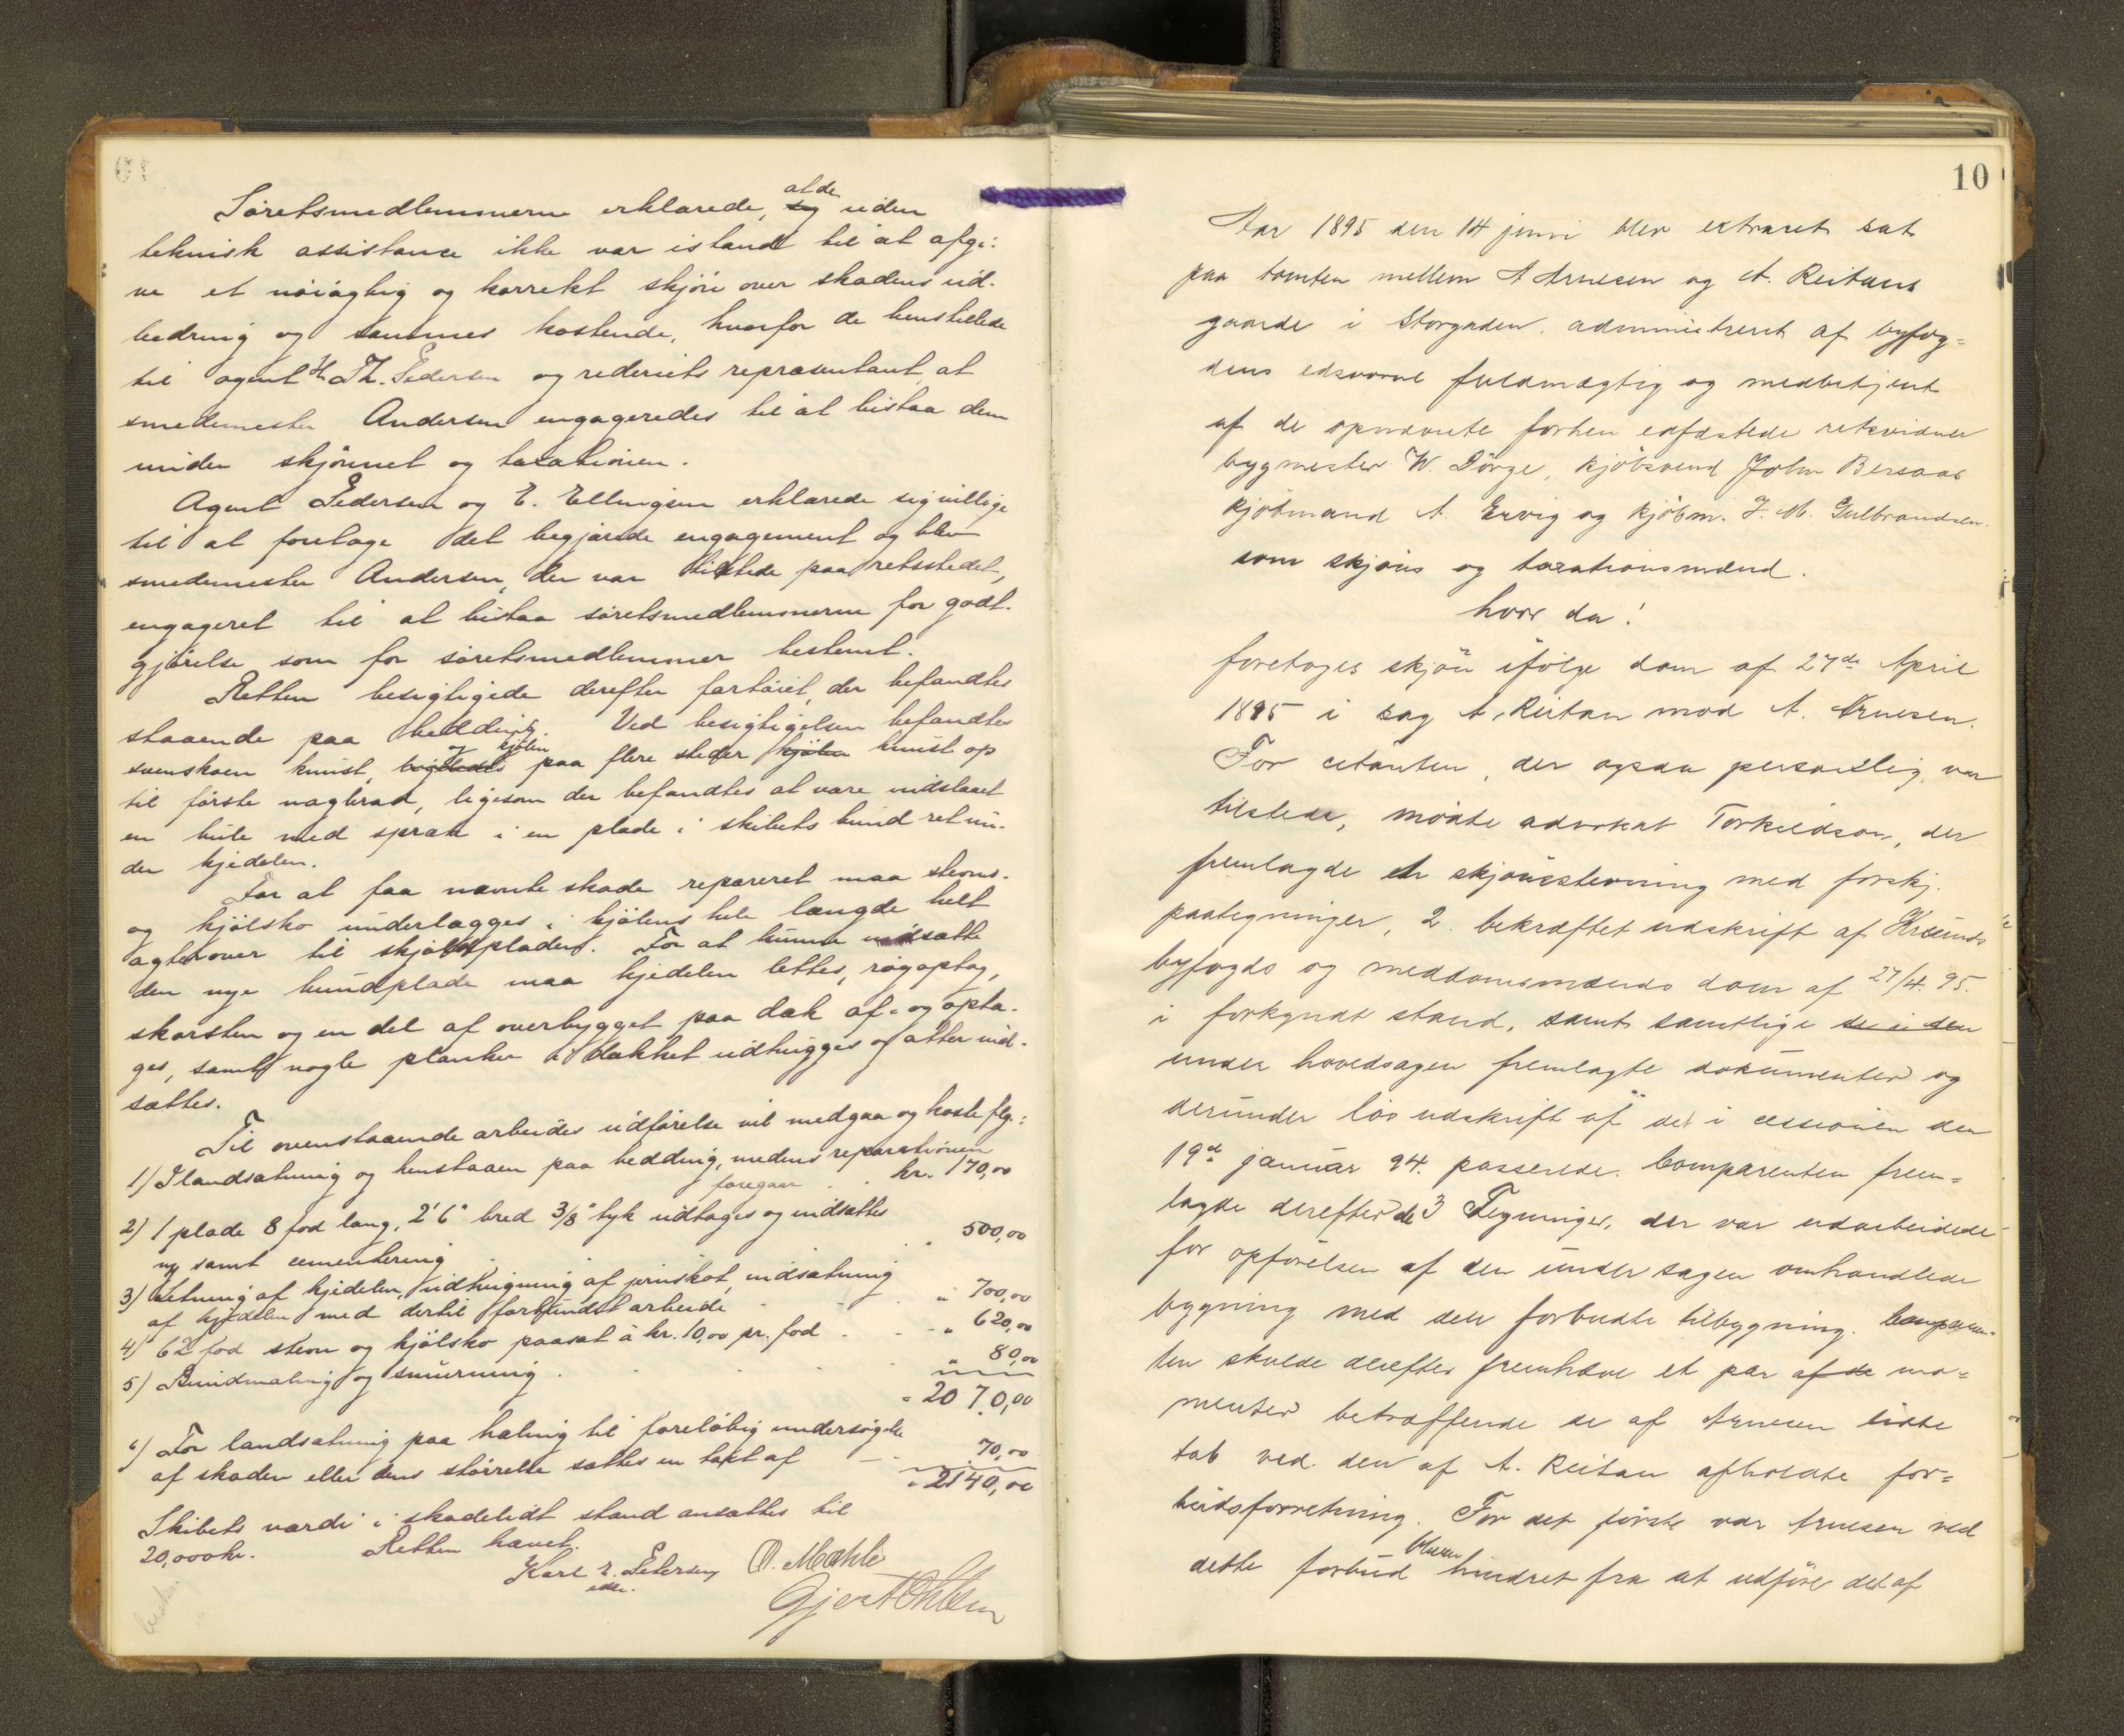 Søretsmedlemmerne erklærede, at de uden
teknisk assistance ikke var istand til at afgi-
ve et nøiagtig og korrekt skjøn over skadens ud-
bedring og sammes kostende, hvorfor de henstillede
til agent H Th. Pedersen og rederiets repræsentant at
smedemester Andersen engageredes til at bistaa dem
under skjønnet og taxationen.
Agent Pedersen og E. Ellingsen erklærede sig villige
til at foretage det begjærede engagement og blev
smedemester Andersen, der var tilstede paa retsstedet,
engageret til at bistaa søretsmedlemmerne for godt-
gjørelse som for søretsmedlemmer bestemt.
Retten besigtigede derefter fartøiet, der befandtes
staaende paa bedding. Ved besigtigelsen befandtes
svenskoen knust, og kjølen paa flere steder kjølen knust op
til første naglerad, ligesom der befandtes at være indslaaet
en bule med spræk i en plade i skibets bund ret un-
der kjedelen.
For at faa nævnte skade repareret maa stevns-
og kjølsko underlægges i kjølens hele længde helt
agterover til skjøtspladen. For at kunne indsætte
den nye bundplade maa kjedelen lettes, røgoptag,
skorsten og en del af overbygget paa dæk af- og opta-
ges, samt nogle planker af dækket udhugges og atter ind-
sættes.
Til ovenstaaende arbeides udførelse vil medgaa og koste flg.:
1) Ilandsætning og henstaaen paa bedding, medens reparationen
foregaar . . kr. 170,00
2) 1 plade 8 fod lang, 2'6" bred 3/8" tyk udtages og indsættes
ny samt cementering . . " 500,00
3) Letning af kjedelen, udhugning af jernskot, indsætning
af kjedelen med dertil forbundet arbeide . . " 700,00
4) 62 fod stevn og kjølsko paasat à kr. 10,00 pr. fod . . " 620,00
5) Bundmaling og smurning . . " 80,00
= 2070,00
6) For landsætning paa haling til foreløbig undersøgelse
af skaden eller dens størrelse sættes en takt af 70,00
= 2140,00
Skibets værdi i skadelidt stand ansættes til
20,000 kr. Retten hævet.
Karl E. Petersen O. Mæhle
edsv.
Gjert Ohlsen
10
Aar 1895 den 14 juni blev extraret sat
paa tomten mellem A Arnesen og A. Reitans
gaarde i Storgaden, administreret af byfog-
dens edsvorne fuldmægtig og medbetjent
af de opnævnte forhen edfæstede retsvidner
bygmester W. Dørge, kjøbsvend John Bersaas
kjøbmand A. Ervig og kjøbm. J. M. Gulbrandsen.
som skjøns og taxationsmænd.
hvor da!
foretoges skjøn ifølge dom af 27de April
1895 i sag A. Reitan mod A. Arnesen.
For citanten, der ogsaa personlig var
tilstede, mødte advokat Torkildson, der
fremlagde 1 skjønsstevning med forskj.
paategninger, 2. bekræftet udskrift af Krsunds
byfogds og meddomsmænds dom af 27/4. 95.
i forkyndt stand, samt samtlige de i den
under hovedsagen fremlagte dokumenter og
derunder løs udskrift af det i cessionen den
19de januar 94. passerede. Comparenten frem-
lagde derefter de 3 Tegninger, der var udarbeidede
for opførelsen af den under sagen omhandlede
bygning med den forbudte tilbygning. Comparen-
ten skulde derefter fremhæve et par af de mo-
menter betræffende de af Arnesen lidte
tab ved den af A. Reitan afholdte for-
budsforretning. For det første var Arnesen ved
dette forbud bleven hindret fra at udføre det af